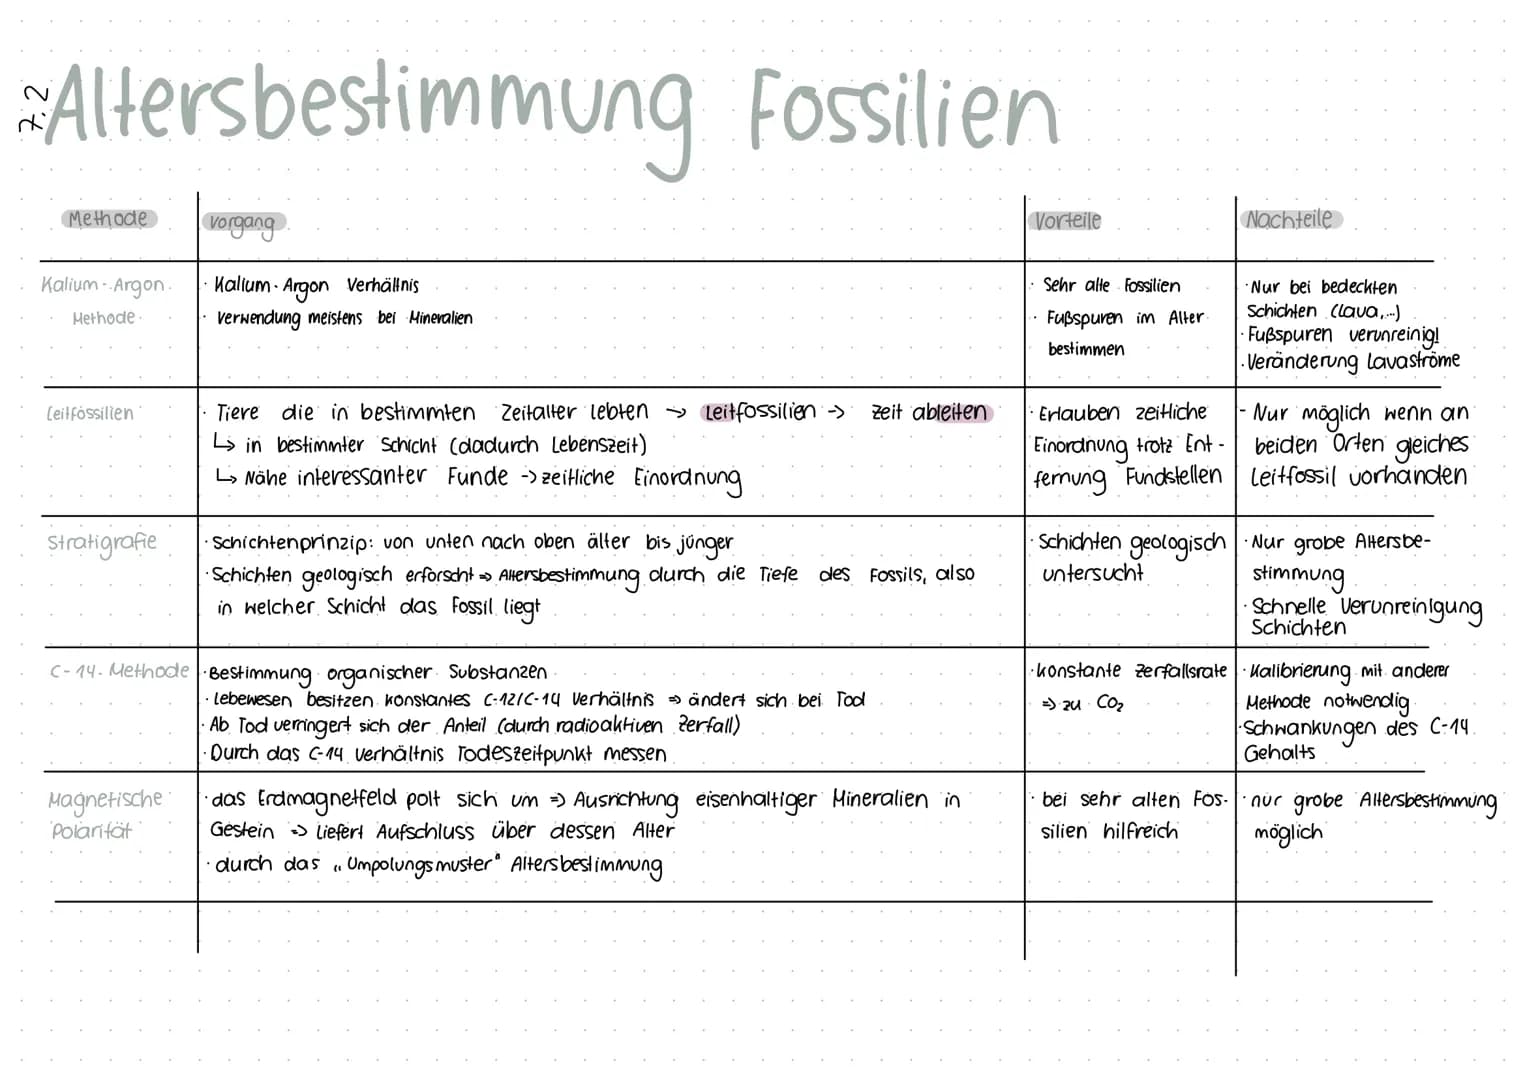 7.2
Altersbestimmung Fossilien
Methode
Vorgang
Vorteile
Nachteile
Kalium-Argon
Methode
· Kalium-Argon Verhältnis
· Verwendung meistens bei Mineralien
· Sehr alte Fossilien
· Fußspuren im Alter
bestimmen
· Nur bei bedeckten
Schichten (Lava,...)
· Fußspuren verunreinigt
· Veränderung Lavaströme
Leitfossilien
· Tiere die in bestimmten Zeitalter lebten → Leitfossilien → Zeit ableiten
↳ in bestimmter Schicht (dadurch Lebenszeit)
↳ Nähe interessanter Funde → zeitliche Einordnung
· Erlauben zeitliche
Einordnung trotz Ent-
fernung Fundstellen
- Nur möglich wenn an
beiden Orten gleiches
Leitfossil vorhanden
Stratigrafie
· Schichtenprinzip: von unten nach oben älter bis jünger
· Schichten geologisch erforscht ⇒ Altersbestimmung durch die Tiefe des Fossils, also
in welcher Schicht das Fossil liegt
· Schichten geologisch
untersucht
· Nur grobe Altersbe-
stimmung
· Schnelle Verunreinigung
Schichten
C-14-Methode
· Bestimmung organischer Substanzen
· Lebewesen besitzen konstantes C-12/C-14 Verhältnis ⇒ ändert sich bei Tod
· Ab Tod verringert sich der Anteil (durch radioaktiven Zerfall)
· Durch das C-14 Verhältnis Todeszeitpunkt messen
· konstante Zerfallsrate
⇒ zu CO₂
· Kalibrierung mit anderer
Methode notwendig
· Schwankungen des C-14
Gehalts
Magnetische
Polarität
· das Erdmagnetfeld polt sich um ⇒ Ausrichtung eisenhaltiger Mineralien in
Gestein ⇒ Liefert Aufschluss über dessen Alter
· durch das „Umpolungsmuster" Altersbestimmung
· bei sehr alten Fos-
silien hilfreich
· nur grobe Altersbestimmung
möglich